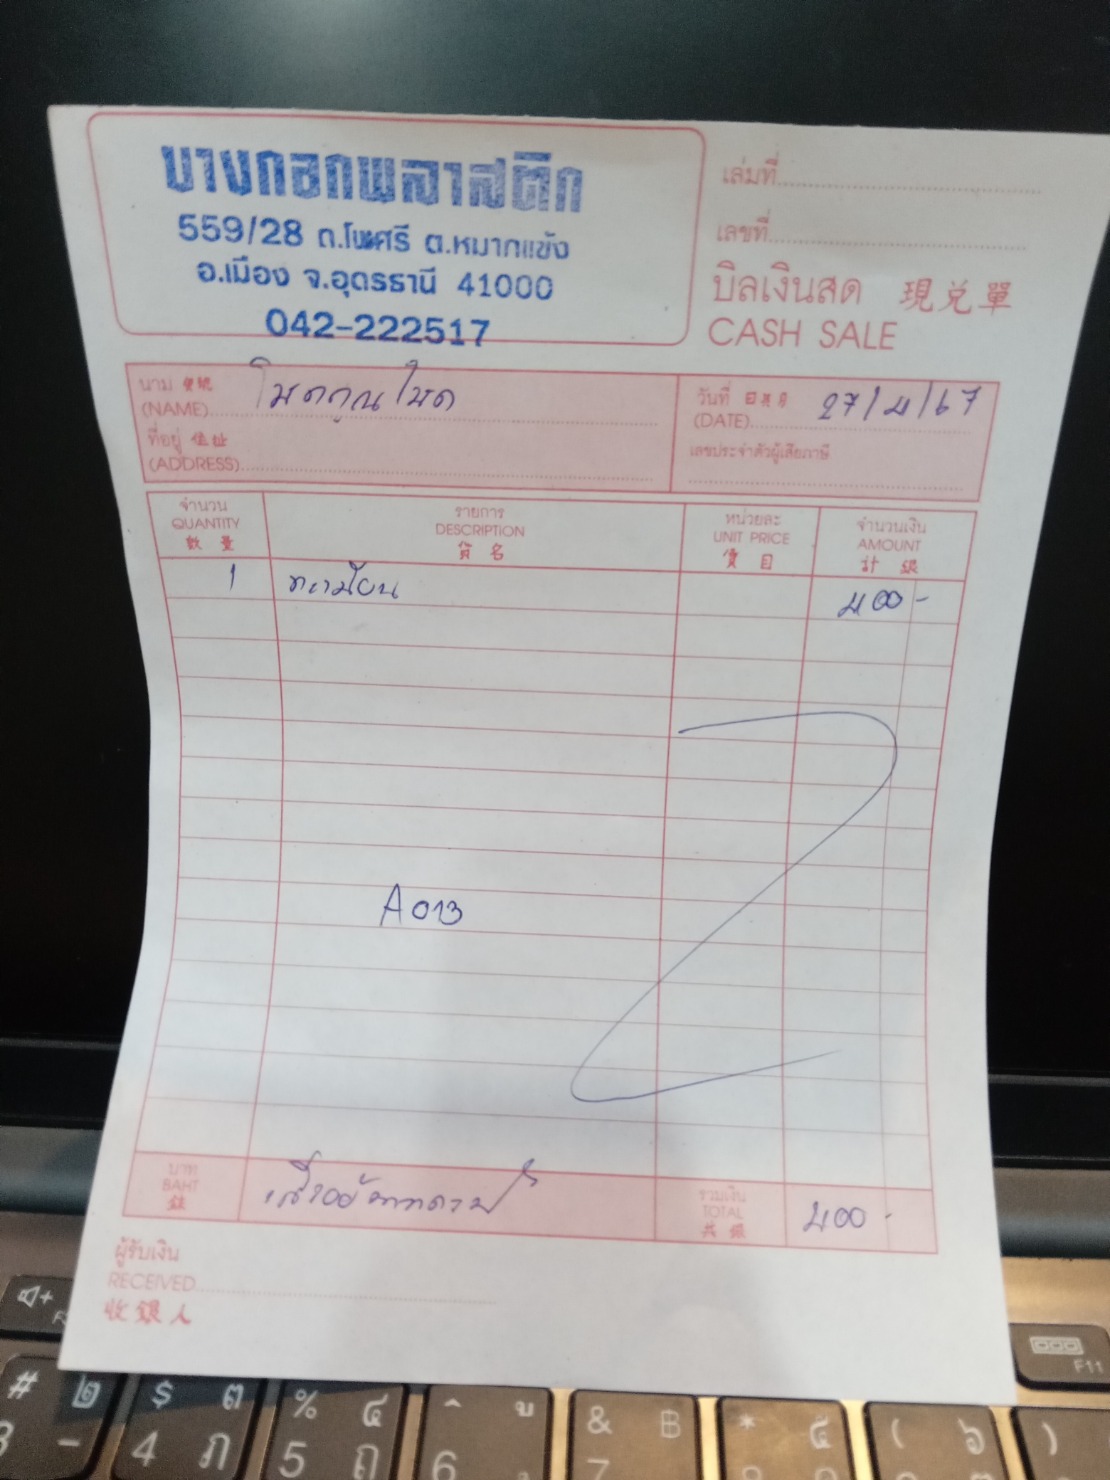 บางกอกพลาสติก
559/28 ถ.โพศรี ต.หมากแข้ง
อ.เมือง จ.อุดรธานี 41000
042-222517
เล่มที่
เลขที่
บิลเงินสด 現兑單
CASH SALE
นาม 寶號
(NAME) โชคคูณโชค
วันที่ 日期
(DATE) 27/4/67
ที่อยู่ 住址
(ADDRESS)
เลขประจำตัวผู้เสียภาษี
จำนวน รายการ หน่วยละ จำนวนเงิน
QUANTITY DESCRIPTION UNIT PRICE AMOUNT
數量 貨名 價目 計銀
1 400-
A013
บาท
BAHT
銖
รวมเงิน
TOTAL 400-
共銀
ผู้รับเงิน
RECEIVED
收銀人
F11
# ๒ $ ๓ % ๔ ^ ู & ฿ * ๕ ( ๖ )
3 - 4 ภ 5 ถ 6 7